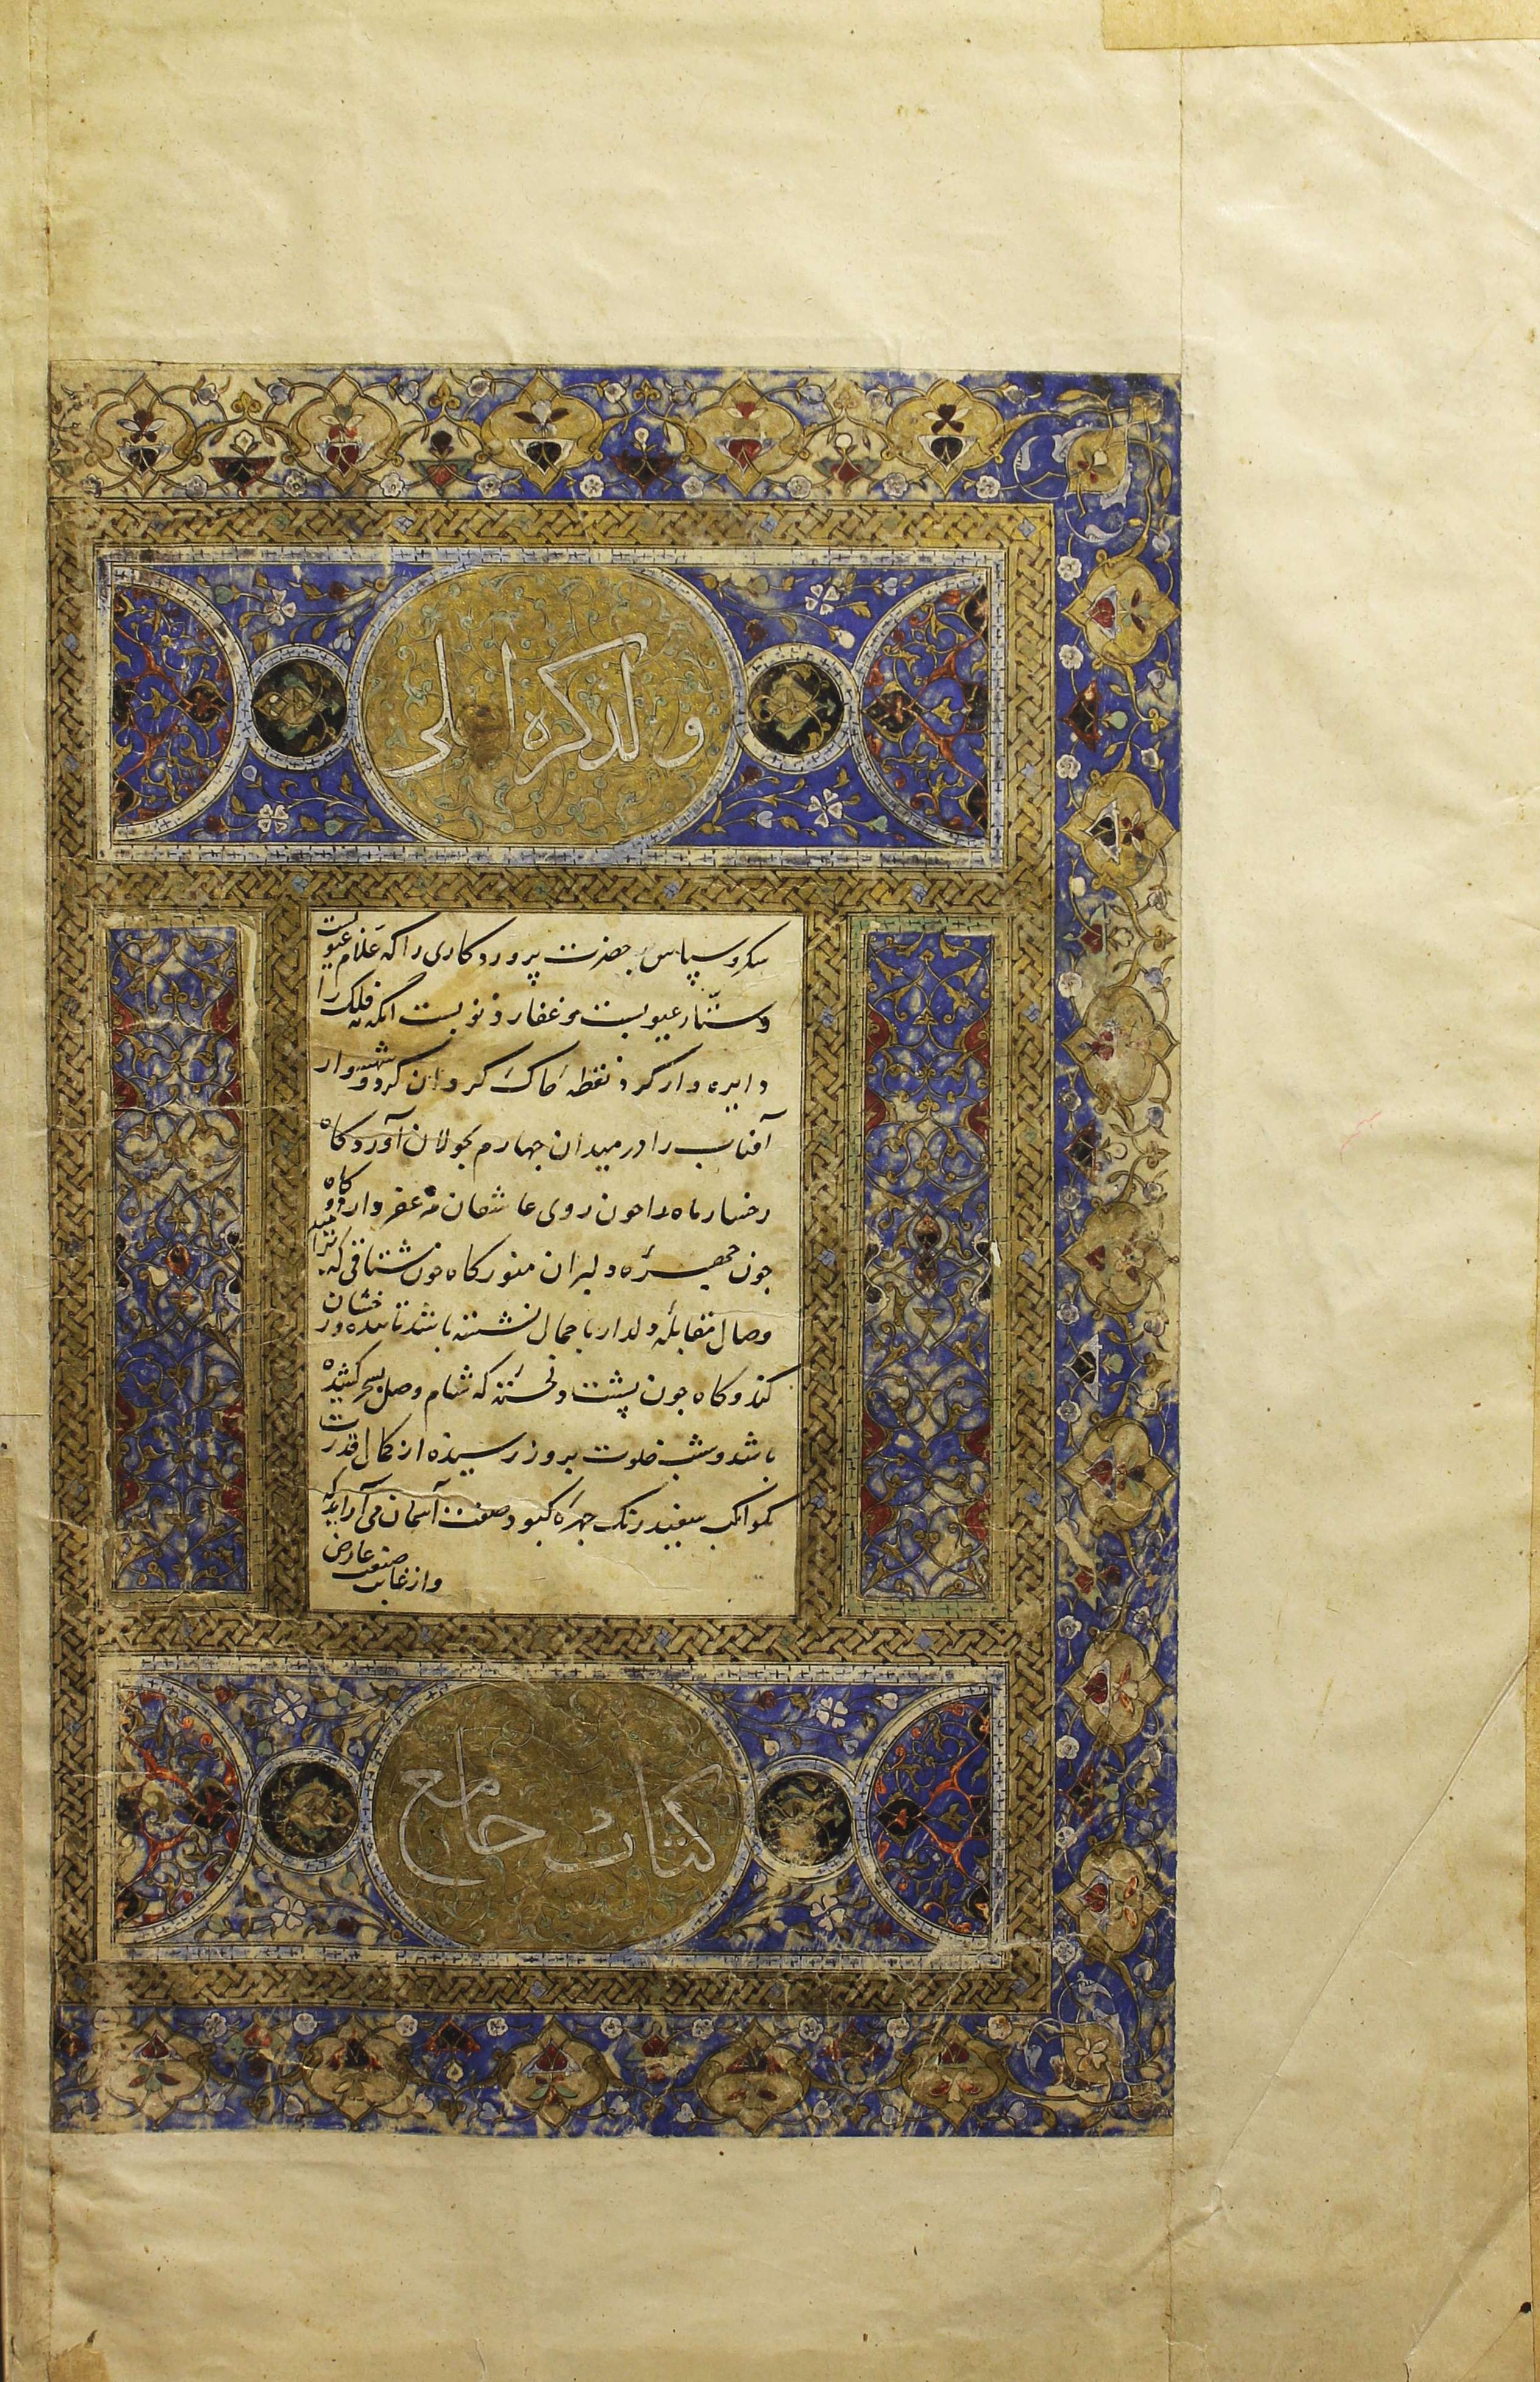 ولذکره اعلی
شکر و سپاس حضرت پروردکاری را که علام غیوبست
و ستار عیوبست و غفار ذنوبست آنکه فلک را
دایره وار کرد نقطه خاک کردان کرد و شهسوار
آفتاب را در میدان چهارم بجولان آورد کاه
رخسار ماه را چون روی عاشقان مزعفر دارد و کاه
چون چهره دلبران منور کاه چون مشتاقی که
وصال مقابله دلدار با جمال نشسته باشد تابنده و رخشان
کند و کاه چون پشت دلخسته که شام وصلش بسحر کشیده
باشد و شب خلوت بروز رسیده از کمال قدرت
بکواکب سفید رنک چهره کبود صفت آسمان می آراید که
و از غایت صنعت عارض
کتاب جامع